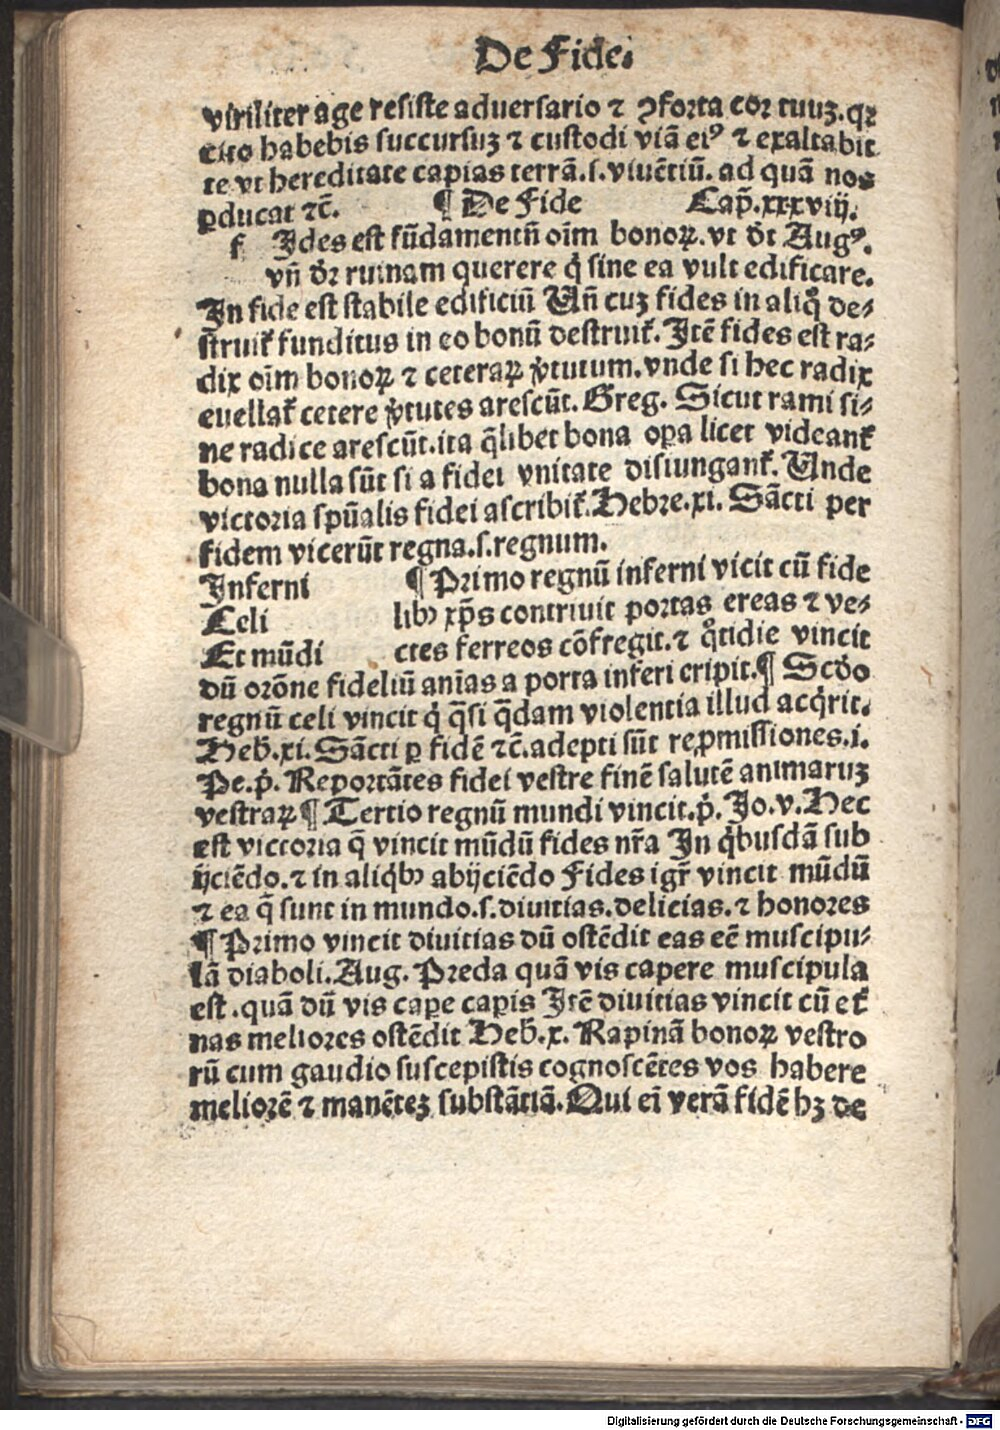 De Fide.
viriliter age resiste aduersario ⁊ ꝯforta cor tuuꝫ. qꝛ
cito habebis succursuꝫ ⁊ custodi viā eiꝰ ⁊ exaltabit
te vt hereditate capias terrā.s.viuētiū. ad quā nos
ꝑducat ⁊c̄. ¶ De Fide Cap̄.xxxviij.
f Ides est fūdamentū oīm bonoꝝ. vt d̄t Augꝰ.
vn̄ d̄r ruinam querere q̇ sine ea vult edificare.
In fide est stabile edificiū Un̄ cuꝫ fides in aliq̊ de⸗
struit᷑ funditus in eo bonū destruit᷑. Itē fides est ra⸗
dix oīm bonoꝝ ⁊ ceteraꝝ v̓tutum. vnde si hec radix
euellat᷑ cetere v̓tutes arescūt. Greg. Sicut rami si⸗
ne radice arescūt. ita q̄libet bona oꝑa licet videant᷑
bona nulla sūt si a fidei vnitate disiungant᷑. Unde
victoria spūalis fidei ascribit᷑. Hebre.xi. Sācti per
fidem vicerūt regna.s.regnum.
Inferni ¶ Primo regnū inferni vicit cū fide
Celi libꝫ xp̄s contriuit portas ereas ⁊ ve⸗
Et mūdi ctes ferreos cōfregit. ⁊ q̊tidie vincit
dū orōne fideliū aīas a porta inferi eripit. ¶ Scd̓o
regnū celi vincit q̇ q̄si q̄dam violentia illud acq̇rit.
Heb̓.xi. Sācti ꝑ fidē ⁊c̄. adepti sūt reꝓmissiones.i.
Pe.ṗ. Reportātes fidei vestre finē salutē animaruꝫ
vestraꝝ ¶ Tertio regnū mundi vincit.ṗ. Jo.v. Hec
est victoria q̄ vincit mūdū fides nr̄a In q̇busdā sub
ijciēdo. ⁊ in aliq̇bꝫ abijciēdo Fides igr̄ vincit mūdū
⁊ ea q̄ sunt in mundo.s.diuitias.delicias. ⁊ honores
¶ Primo vincit diuitias dū ostēdit eas eē muscipu⸗
lā diaboli. Aug. Preda quā vis capere muscipula
est .quā dū vis caꝑe capis Itē diuitias vincit cū et᷑
nas meliores ostēdit Heb̓.x. Rapinā bonoꝝ vestro
rū cum gaudio suscepistis cognoscētes vos habere
meliorē ⁊ manētēꝫ substātiā. Qui eī verā fidē hꝫ de
Digitalisierung gefördert durch die Deutsche Forschungsgemeinschaft - DFG